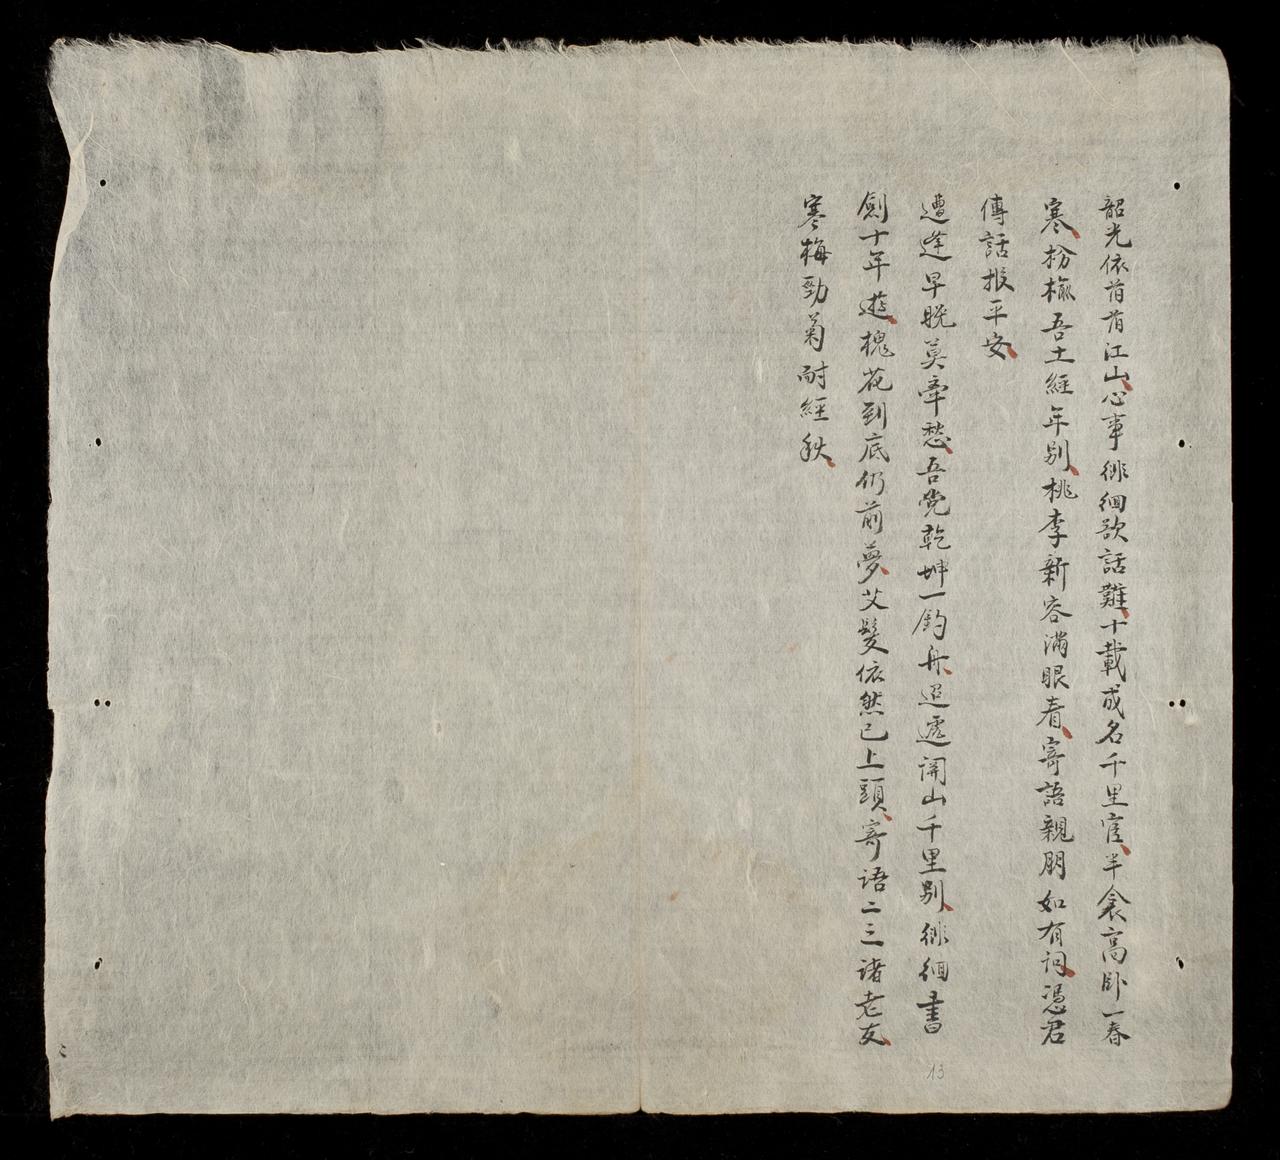 韶光依萻萻江山心事徘徊欲話難十載成名千里宦半衾高卧一春
寒枌榆吾土經年别桃李新容滿眼看寄語親朋如有问憑君
傳話报平安
遭逢早晚莫牽愁吾党乾坤一釣舟迢遞関山千里别徘徊書
劍十年遊槐花到底仍前夢艾髮依然已上頭寄语二三诸老友
寒梅勁菊耐經秋
13